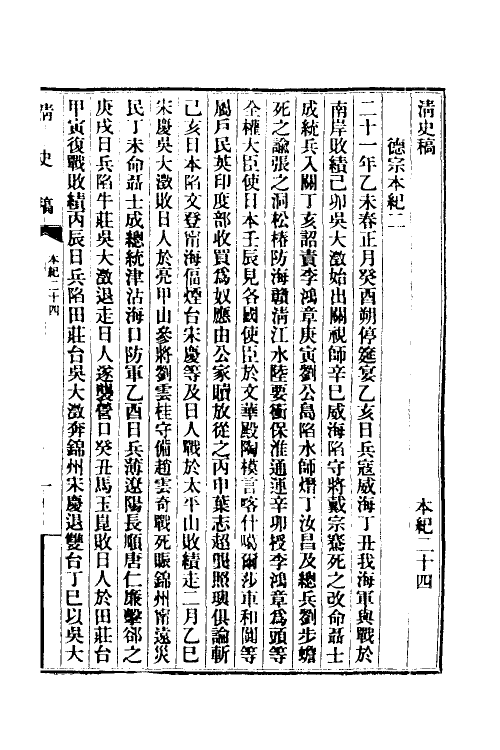 清史稿　本紀二十四
德宗本紀二
二十一年乙未春正月癸酉朔停筵宴乙亥日兵寇威海丁丑我海軍與戰於
南岸敗績己卯吳大澂始出關視師辛巳威海陷守將戴宗騫死之改命聶士
成統兵入關丁亥詔責李鴻章庚寅劉公島陷水師熸丁汝昌及總兵劉步蟾
死之諭張之洞松椿防海贛清江水陸要衝保淮通運辛卯授李鴻章爲頭等
全權大臣使日本壬辰見各國使臣於文華殿陶模言喀什噶爾莎車和闐等
屬戶民英印度部收買爲奴應由公家贖放從之丙申葉志超龔照璵俱論斬
己亥日本陷文登甯海偪煙台宋慶等及日人戰於太平山敗績走二月乙巳
宋慶吳大澂敗日人於亮甲山參將劉雲桂守備趙雲奇戰死賑錦州甯遠災
民丁未命聶士成總統津沽海口防軍乙酉日兵薄遼陽長順唐仁廉擊卻之
庚戌日兵陷牛莊吳大澂退走日人遂襲營口癸丑馬玉崑敗日人於田莊台
甲寅復戰敗績丙辰日兵陷田莊台吳大澂奔錦州宋慶退雙台丁巳以吳大
清史稿
本紀二十四
一